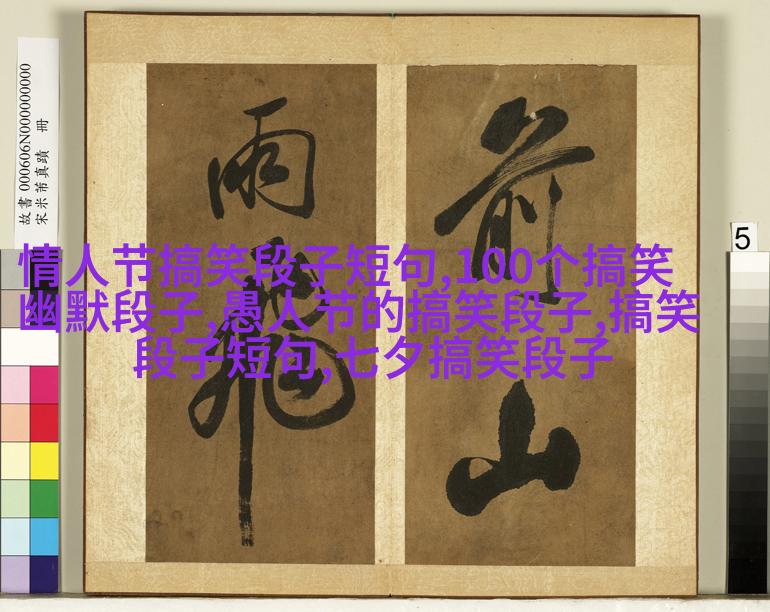 情人节搞笑段子短句,100个搞笑
幽默段子,愚人节的搞笑段子,搞笑
段子短句,七夕搞笑段子
前山
雨飛
故書 000606N000000000
宋米芾真蹟 冊
5